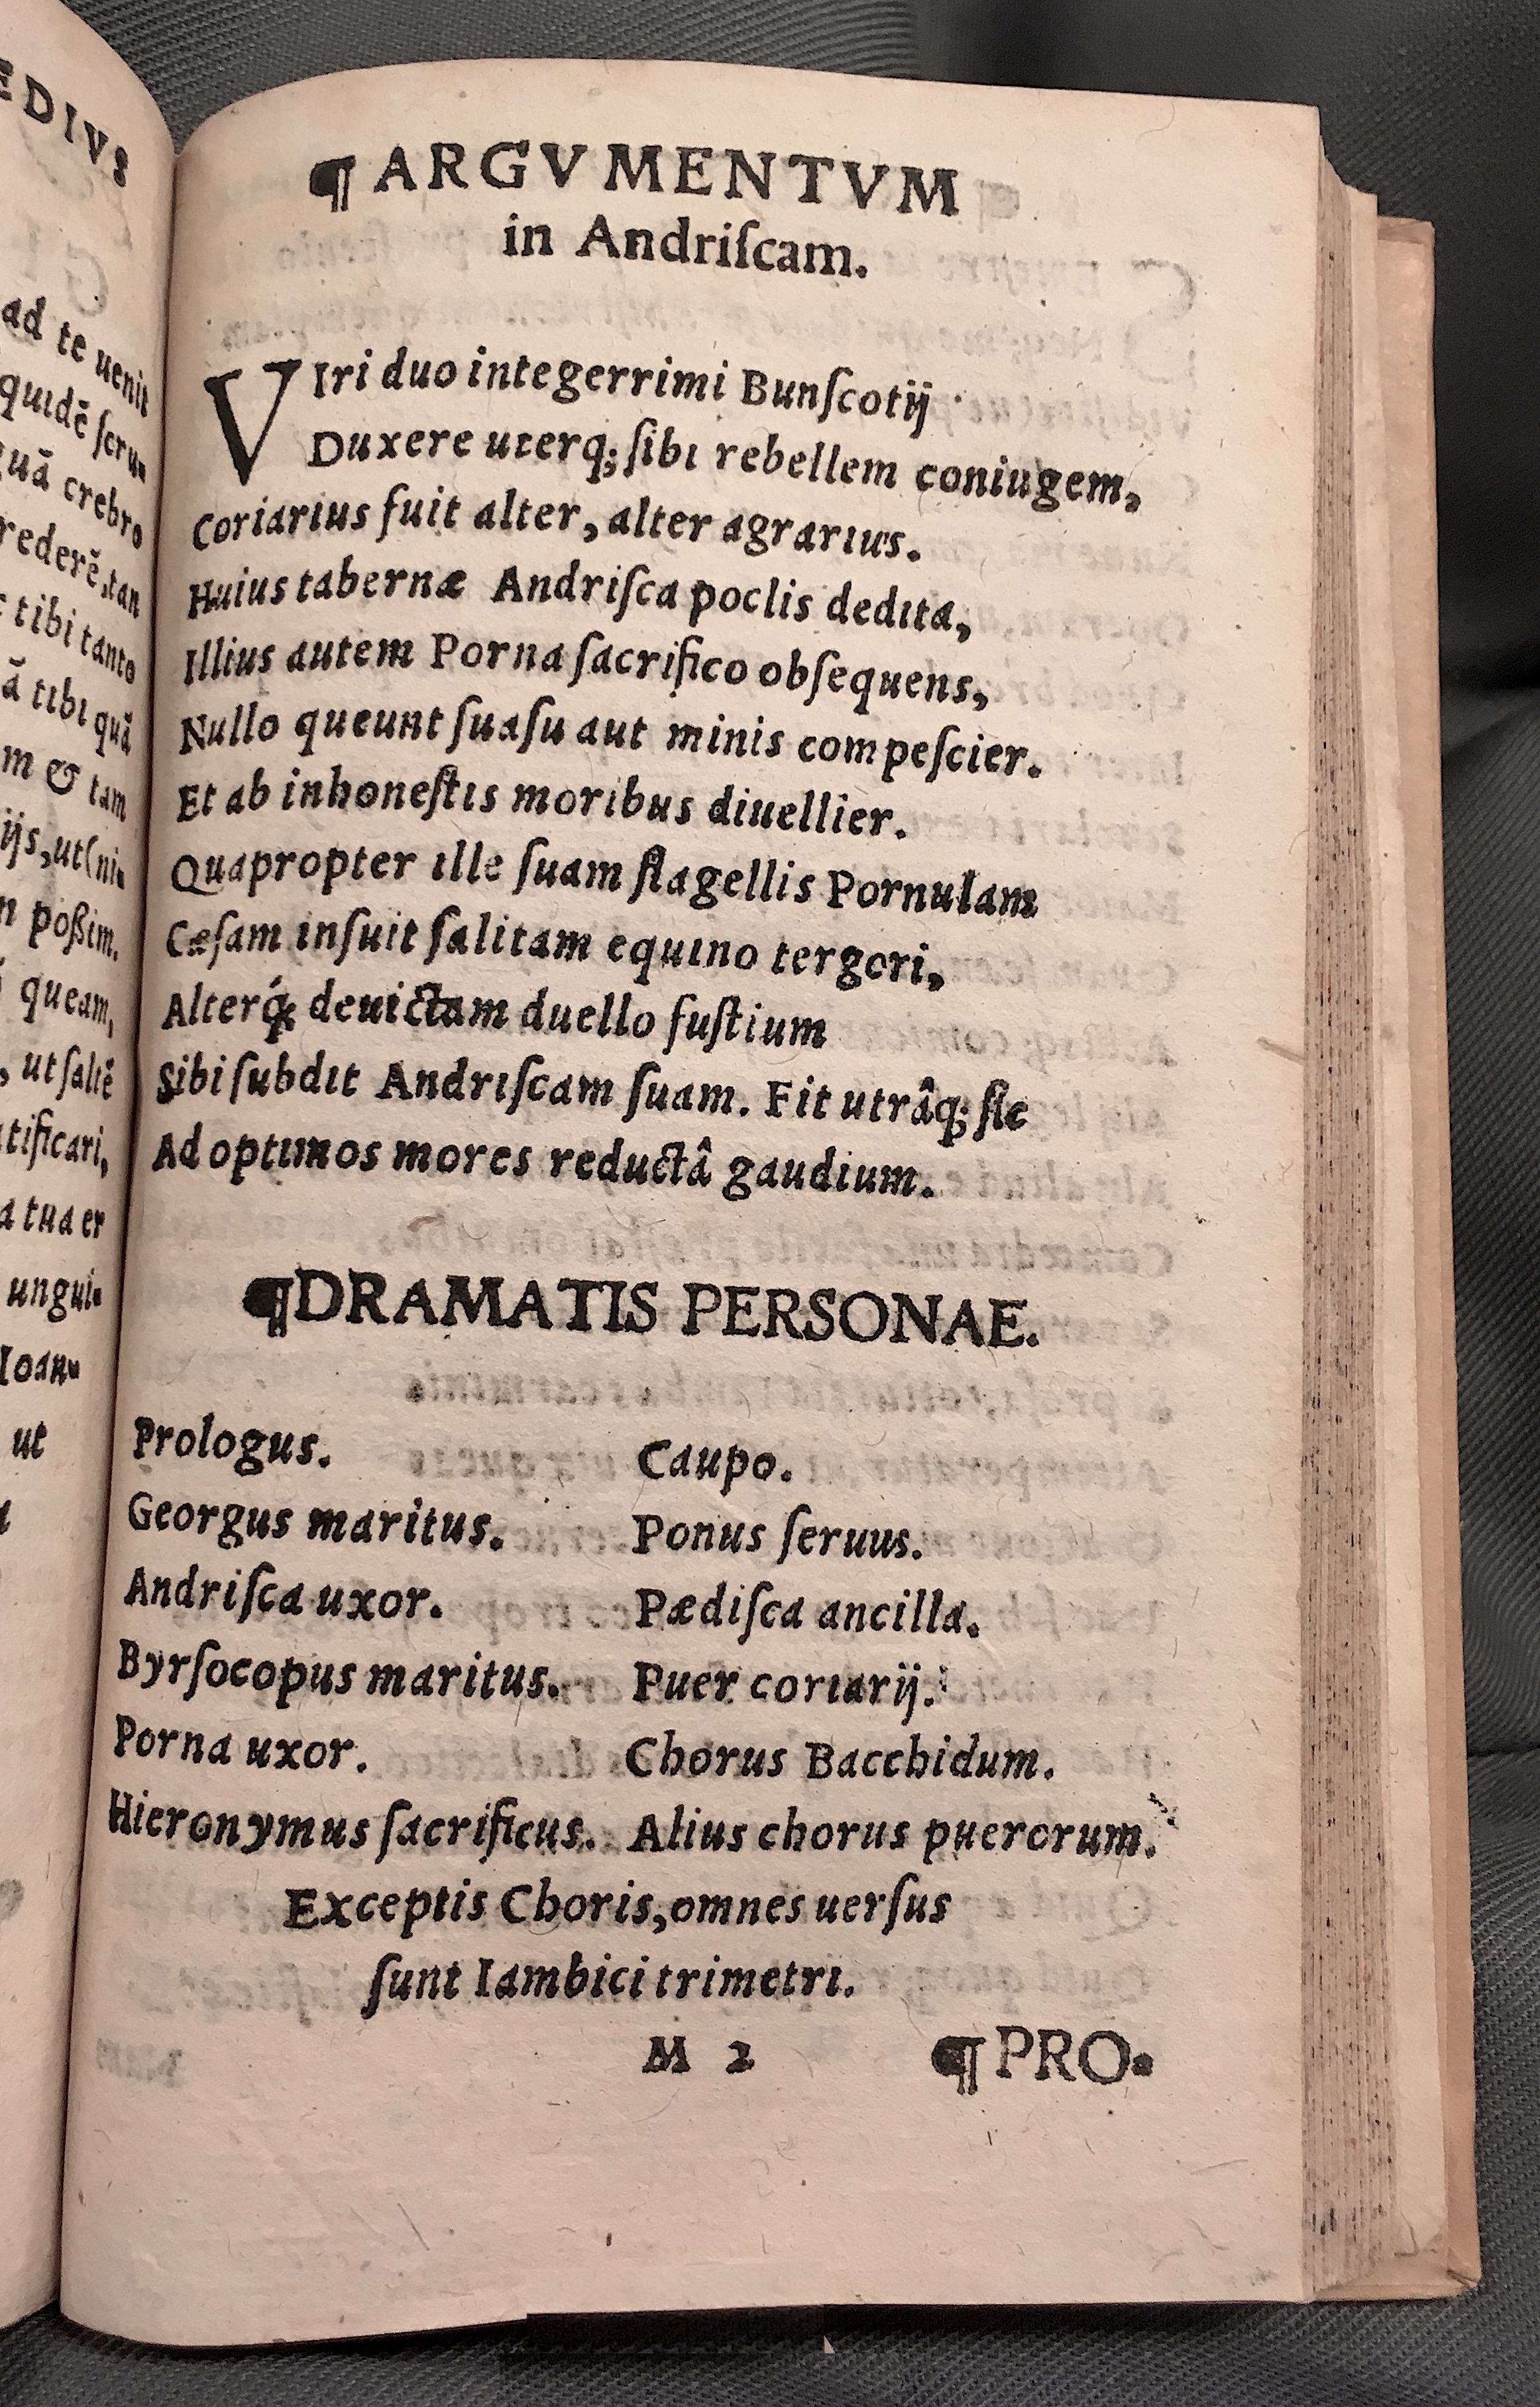 EDIVS
ad te uenit
quidē ſeru-
quā crebro
rederē,tan
tibi tanto
ā tibi quā
m & tam
ijs,ut(ni-
poßim.
queam,
, ut ſaltē
tificari,
a tua er
ungui-
Ioan-
ut
¶ ARGVMENTVM
in Andriſcam.
VIri duo integerrimi Bunſcotij
Duxere uterq; ſibi rebellem coniugem,
Coriarius fuit alter, alter agrarius.
Huius tabernæ Andriſca poclis dedita,
Illius autem Porna ſacrifico obſequens,
Nullo queunt ſuaſu aut minis compeſcier.
Et ab inhoneſtis moribus diuellier.
Quapropter ille ſuam flagellis Pornulam
Cæſam inſuit ſalitam equino tergori,
Alterq́; deuictam duello fuſtium
Sibi ſubdit Andriſcam ſuam. Fit utrâq; ſic
Ad optimos mores reductâ gaudium.
¶DRAMATIS PERSONAE.
Prologus. Caupo.
Georgus maritus. Ponus ſeruus.
Andriſca uxor. Pædiſca ancilla.
Byrſocopus maritus. Puer coriarij.
Porna uxor. Chorus Bacchidum.
Hieronymus ſacrificus. Alius chorus puerorum.
Exceptis Choris,omnes uerſus
ſunt Iambici trimetri.
M 2 ¶PRO-